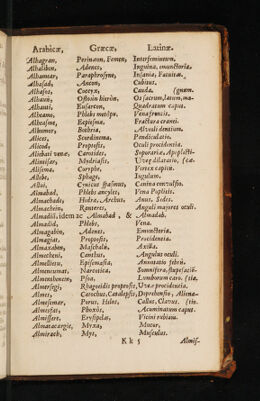 Arabicæ, Græcæ, Latinæ.
Albagran, Perinæon, Femen, Interfeminium.
Albalibin, Adenes, Inguina, emunctoria.
Albamar, Paraphrosyne, Insania,
Albasad, Ancon, Cubitus.
Albasos, Coccyx, Cauda. (gnum.
Albaun, Ostoûn hieròn, Os sacrum, latum, ma-
Albaui, Eusarcon, Quadratum caput.
Albeame, Phlebs Vena frencis.
Albeasme, Fractura cranei.
Albumer, Bothria, Alveoli dentium.
Alices, Scordinema, Pendiculatio.
Alicod, Proptosis, Oculi procidentia.
Alichati venæ, Carotides, Soporariæ, Apoplecti-
Alintisar, Mydriasis, Uveæ dilatatio, (cæ.
Alisema, Coryphe, Vertex capitis.
Allebe, Sphage, Iugulum.
Alloi, Cynicus spasmus, Canina convulsio.
Almabad, Phlebs ancyles, Vena Poplitis.
Almachada, Hedra, Archus, Anus, Sedes.
Almachein, Ranteres, Anguli majores oculi.
Almadil, idem ac Almabad, & Almadab.
Almadid, Phlebs, Vena.
Almagabin, Adenes, Emunctoria.
Almagias, Proptosis, Procidentia.
Almaxahim, Maschale, Axilla.
Almecheini, Canthus, Angulus oculi.
Almellietu, Episemasia, Annotatio febril.
Almenumat, Narcotica, Somnifera, stupefaciē-
Almenkemcem, Psoa, Lumborum caro. (tia.
Almersegi, Rhagoeidis proptosis, Uveæ procidentia.
Almes, Carochus, Catalepsis, Deprehensio, Aliena-
Almesemar, Porus, Helos, Callus, Clavus. (tio.
Almesfat, Phoxòs, Acuminatum caput.
Almissere, Erysipelas, Vicini rubieas.
Almatacargie, Myxa, Mucor.
Almirach, Mys, Musculus.
K k 5 Almis-